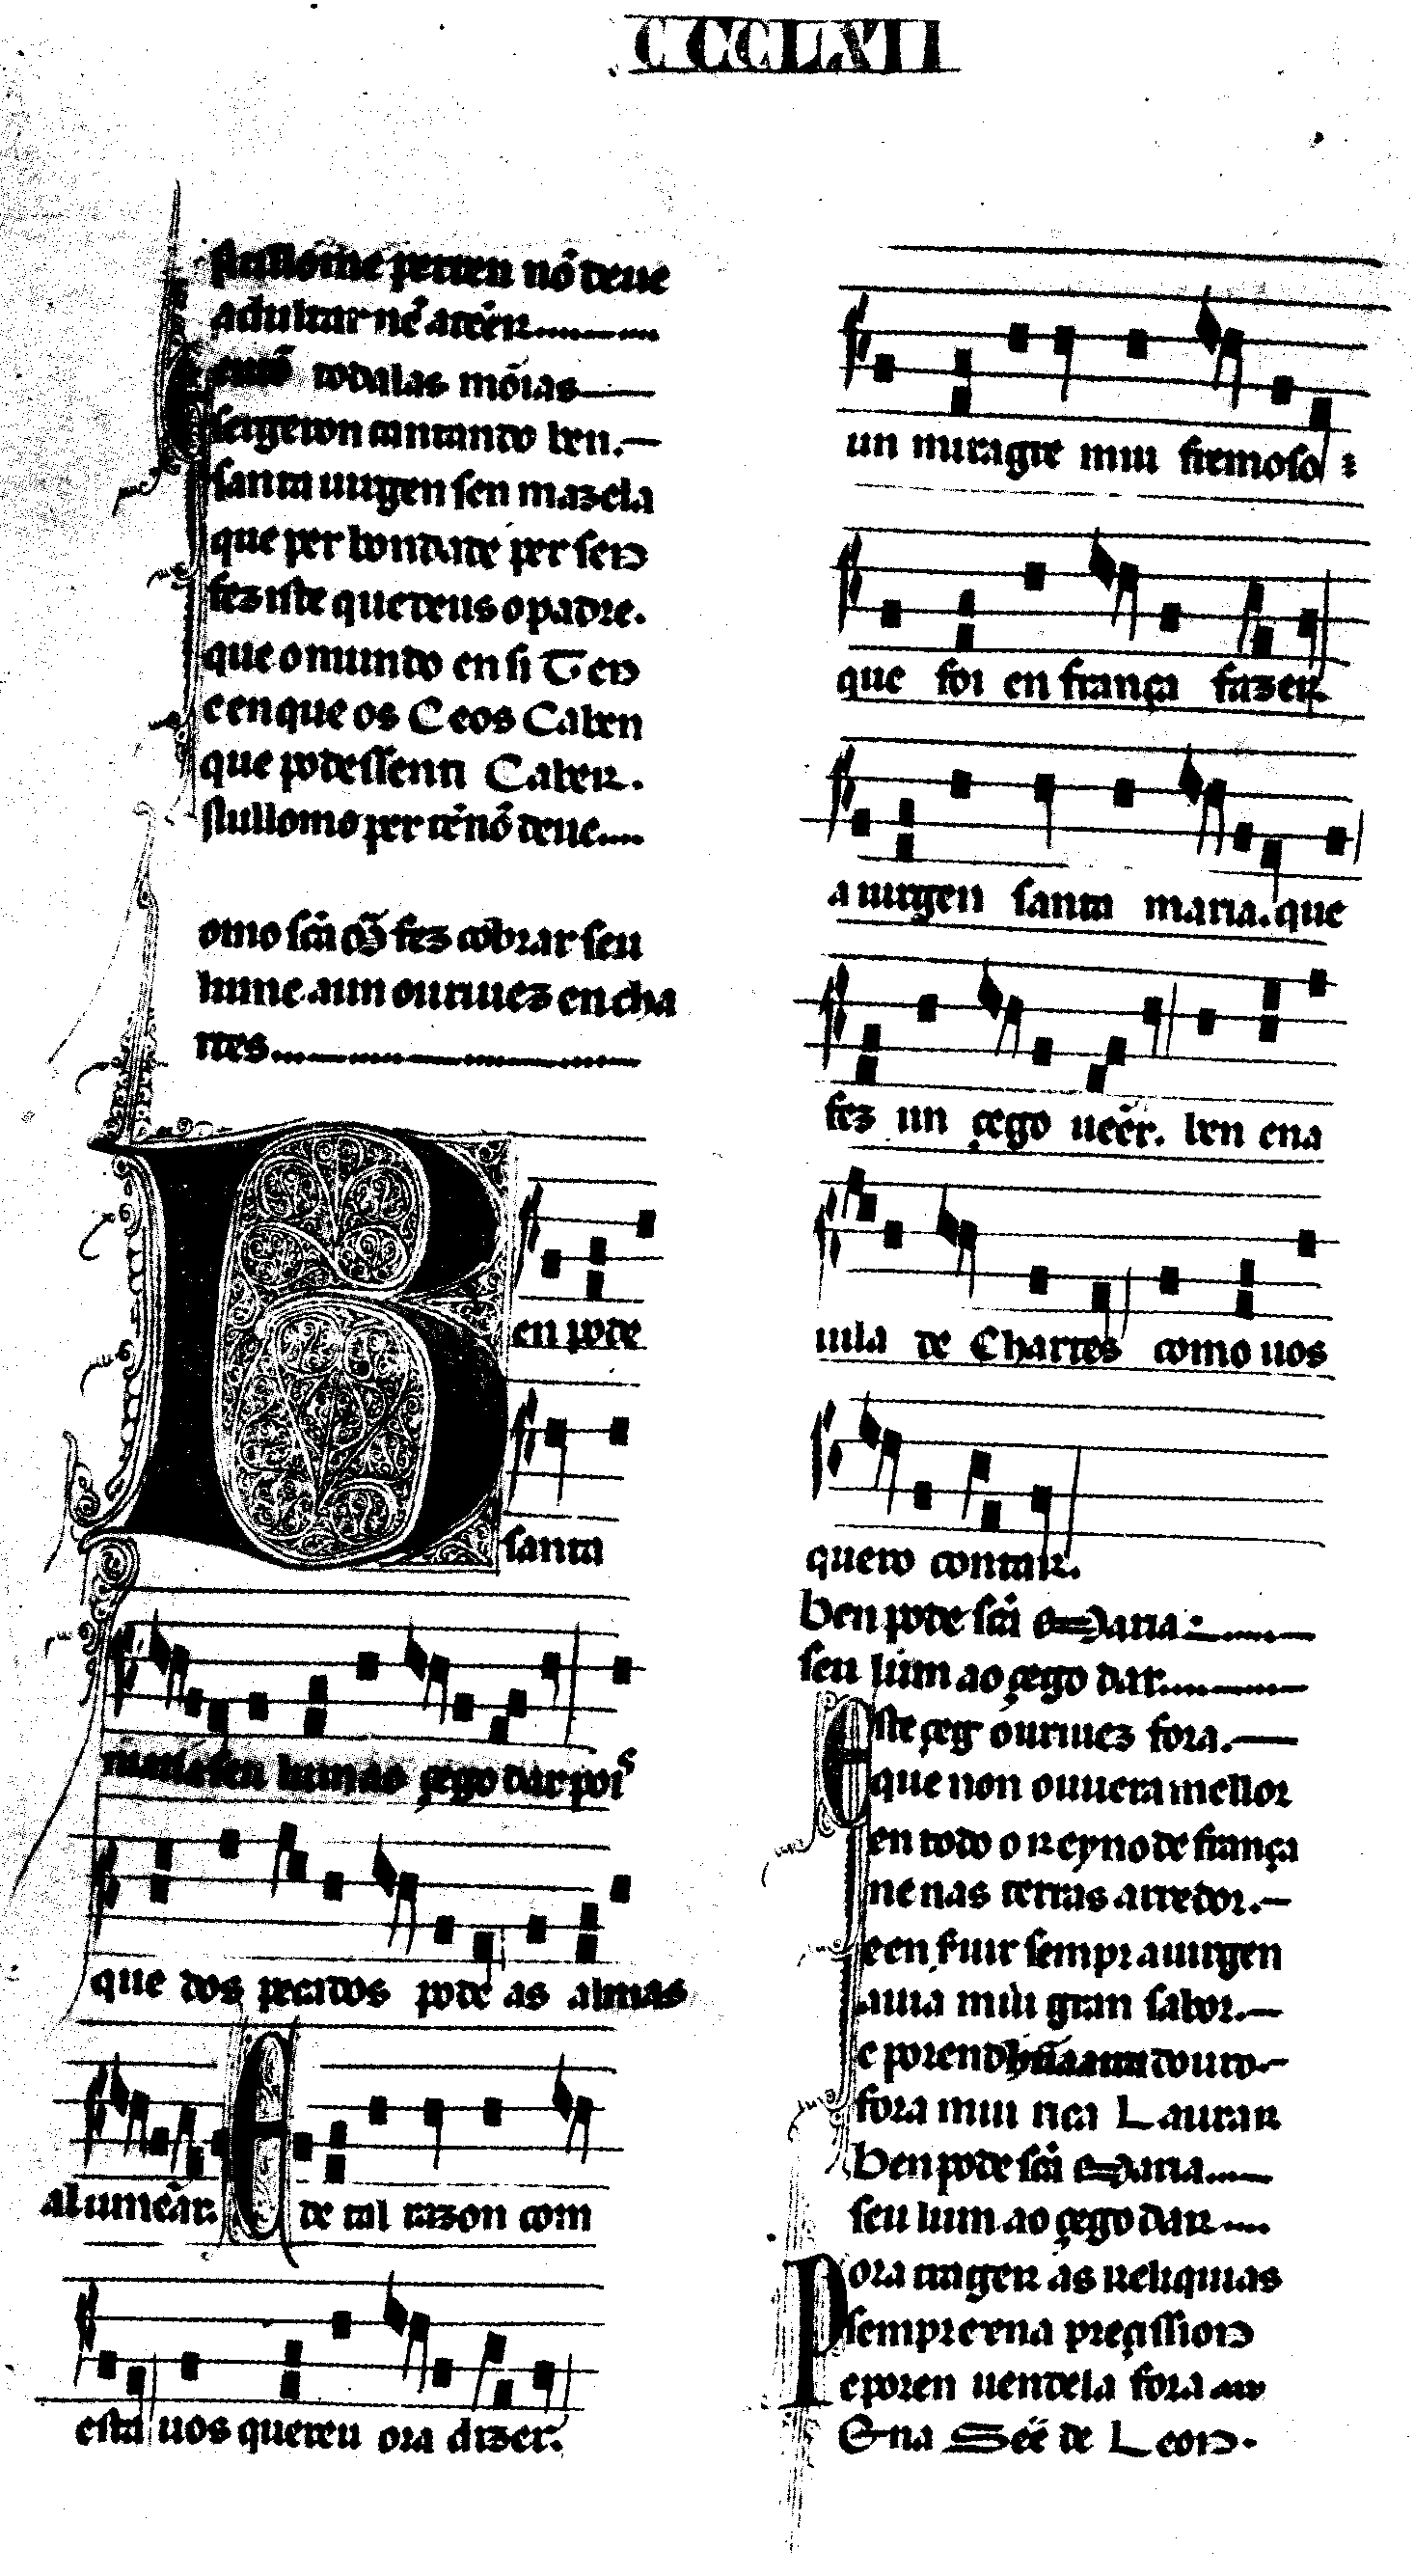 CCCLXII
st assi lome perren nõ deue
a duultar nẽ a creer
todalas mõias
sergeron cantando ben.
santa uirgen sen mazela
que per bondade per sen
fez iste que deus o padre.
que o mundo en si Ten
e en que os Ceos Caben
que podessenn Caber.
stullomo per rẽ nõ deue
omo scã M̃ fez cobrar seu
lume aun ouriuez en cha
rtes
Ben pode
santa
maria seu lumao çego dar poiˢ
que dos pecados pode as almas
alumẽar. E de tal razon com
esta uos quereu ora dizer.
un miragre mui fremoso :
que foi en frança fazer
a uirgen santa maria. que
fez un çego ueẽr. ben ena
uila de Chartes como uos
quero contar.
Ben pode scã Maria :
seu lum ao çego dar
Este çego ouriuez fora.
que non ouuera mellor
en todo o Reyno de frança
ne nas terras arredor.
e en seruir sempr a uirgen
auia mui gran sabor.
e porend hũa arca douro
fora mui rica Laurar
Ben pode scã Maria
seu lum ao çego dar
Pora trager as Reliquias
sempre ena preçission
e poren uendela fora
Ena See de Leon.